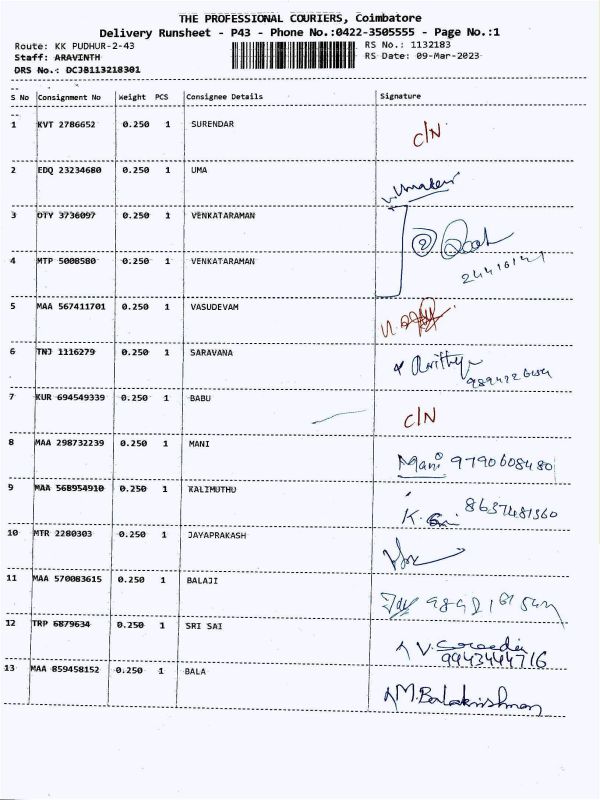 THE PROFESSIONAL COURIERS, Coimbatore
Delivery Runsheet - P43 - Phone No.:0422-3505555 - Page No.:1
Route: KK PUDHUR-2-43 RS No.: 1132183
Staff: ARAVINTH RS Date: 09-Mar-2023
DRS No.: DCJB113218301
S No Consignment No Weight PCS Consignee Details Signature
1 KVT 2786652 0.250 1 SURENDAR C/N
2 EDQ 23234680 0.250 1 UMA
3 OTY 3736097 0.250 1 VENKATARAMAN
4 MTP 5008580 0.250 1 VENKATARAMAN
5 MAA 567411701 0.250 1 VASUDEVAM
6 TNJ 1116279 0.250 1 SARAVANA
7 KUR 694549339 0.250 1 BABU C/N
8 MAA 298732239 0.250 1 MANI Mani 9790608480
9 MAA 568954910 0.250 1 KALIMUTHU 8637481360
10 MTR 2280303 0.250 1 JAYAPRAKASH
11 MAA 570083615 0.250 1 BALAJI
12 TRP 6879634 0.250 1 SRI SAI 9943444716
13 MAA 859458152 0.250 1 BALA M.Balakrishnan